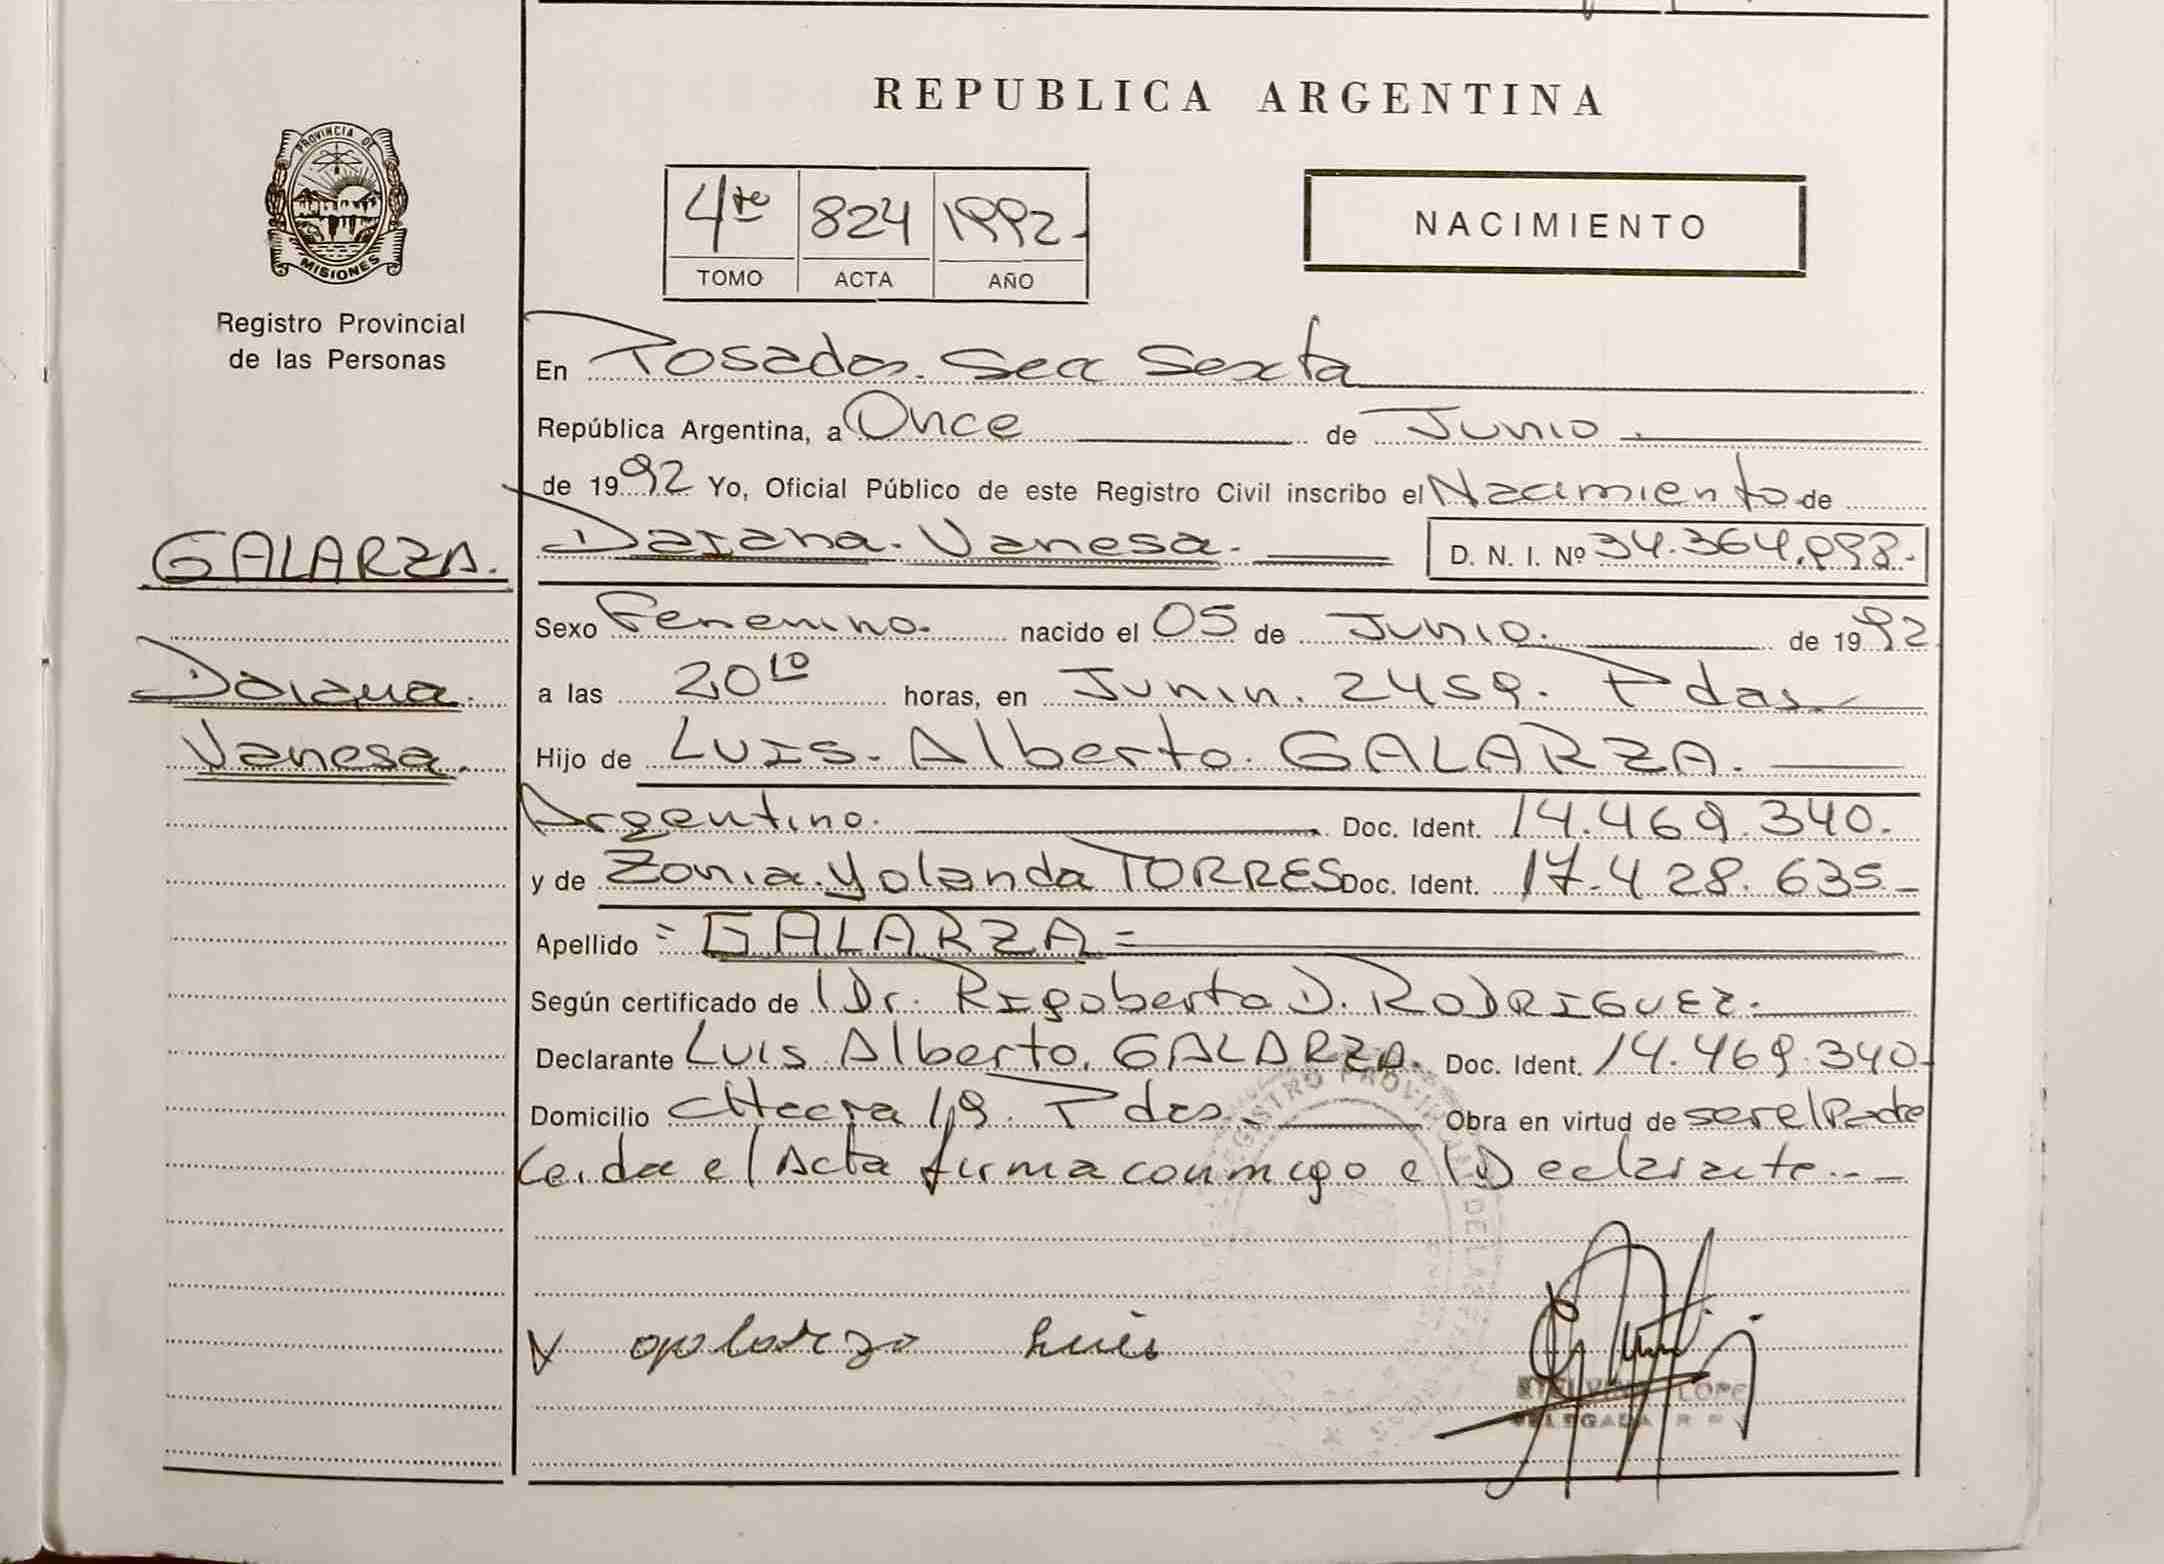 REPUBLICA ARGENTINA
PROVINCIA DE
MISIONES
Registro Provincial
de las Personas
4to 824 1992-
TOMO ACTA AÑO
NACIMIENTO
En Posadas. Secc Sexta
República Argentina, a Once de Junio.
de 1992 Yo, Oficial Público de este Registro Civil inscribo el Nacimiento de
Daiana. Vanesa. D. N. I. Nº 34.364.898.-
GALARZA.
Daiana.
Vanesa.
Sexo Femenino. nacido el 05 de Junio. de 1992
a las 20 10 horas, en Junin. 2459. Pdas.
Hijo de Luis. Alberto. GALARZA.
Argentino. Doc. Ident. 14.469.340.
y de Zonia. Yolanda TORRES Doc. Ident. 17.428.635-
Apellido = GALARZA =
Según certificado de l Dr. Rigoberto D. RODRIGUEZ.
Declarante Luis Alberto. GALARZA. Doc. Ident. 14.469.340-
Domicilio 19. Pdas. Obra en virtud de ser el Padre
Leida el Acta firma conmigo el Declarante.--
REGISTRO PROVINCIAL DE LAS
galarza Luis
LOPE
DELEGADA R P